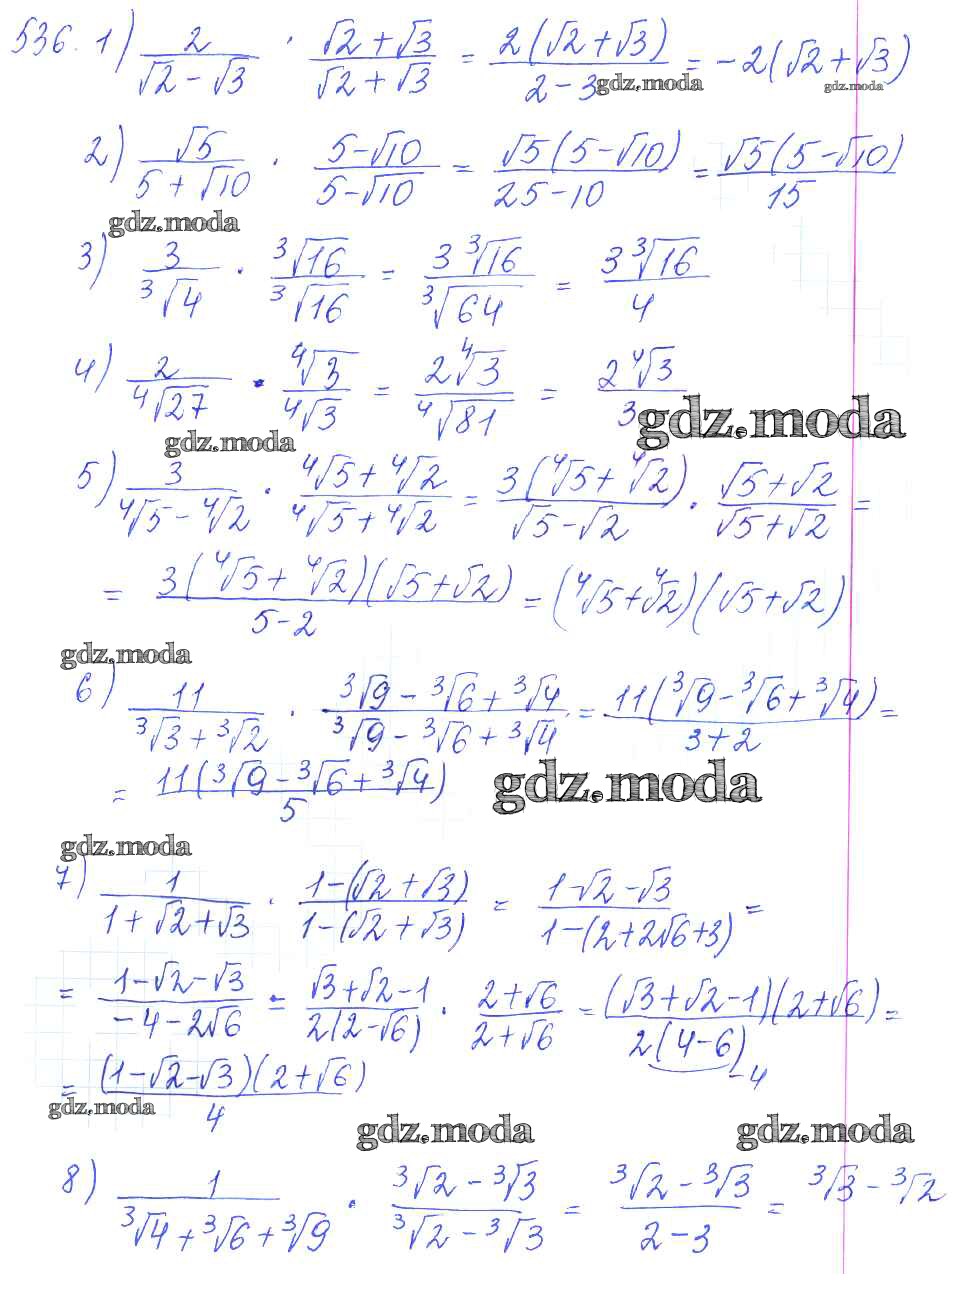 536. 1) 2/(√2 - √3) · (√2 + √3)/(√2 + √3) = 2(√2 + √3)/(2 - 3) = -2(√2 + √3)
gdz.moda gdz.moda
2) √5/(5 + √10) · (5 - √10)/(5 - √10) = √5(5 - √10)/(25 - 10) = √5(5 - √10)/15
gdz.moda
3) 3/³√4 · ³√16/³√16 = 3 ³√16/³√64 = 3 ³√16/4
4) 2/⁴√27 · ⁴√3/⁴√3 = 2 ⁴√3/⁴√81 = 2 ⁴√3/3
gdz.moda
gdz.moda
5) 3/(⁴√5 - ⁴√2) · (⁴√5 + ⁴√2)/(⁴√5 + ⁴√2) = 3(⁴√5 + ⁴√2)/(√5 - √2) · (√5 + √2)/(√5 + √2) =
= 3(⁴√5 + ⁴√2)(√5 + √2)/(5 - 2) = (⁴√5 + ⁴√2)(√5 + √2)
gdz.moda
6) 11/(³√3 + ³√2) · (³√9 - ³√6 + ³√4)/(³√9 - ³√6 + ³√4) = 11(³√9 - ³√6 + ³√4)/(3 + 2) =
= 11(³√9 - ³√6 + ³√4)/5
gdz.moda
gdz.moda
7) 1/(1 + √2 + √3) · (1 - (√2 + √3))/(1 - (√2 + √3)) = (1 - √2 - √3)/(1 - (2 + 2√6 + 3)) =
= (1 - √2 - √3)/(-4 - 2√6) = (√3 + √2 - 1)/(2(2 - √6)) · (2 + √6)/(2 + √6) = (√3 + √2 - 1)(2 + √6)/(2(4 - 6)) =
-4
= (1 - √2 - √3)(2 + √6)/4
gdz.moda
gdz.moda gdz.moda
8) 1/(³√4 + ³√6 + ³√9) · (³√2 - ³√3)/(³√2 - ³√3) = (³√2 - ³√3)/(2 - 3) = ³√3 - ³√2